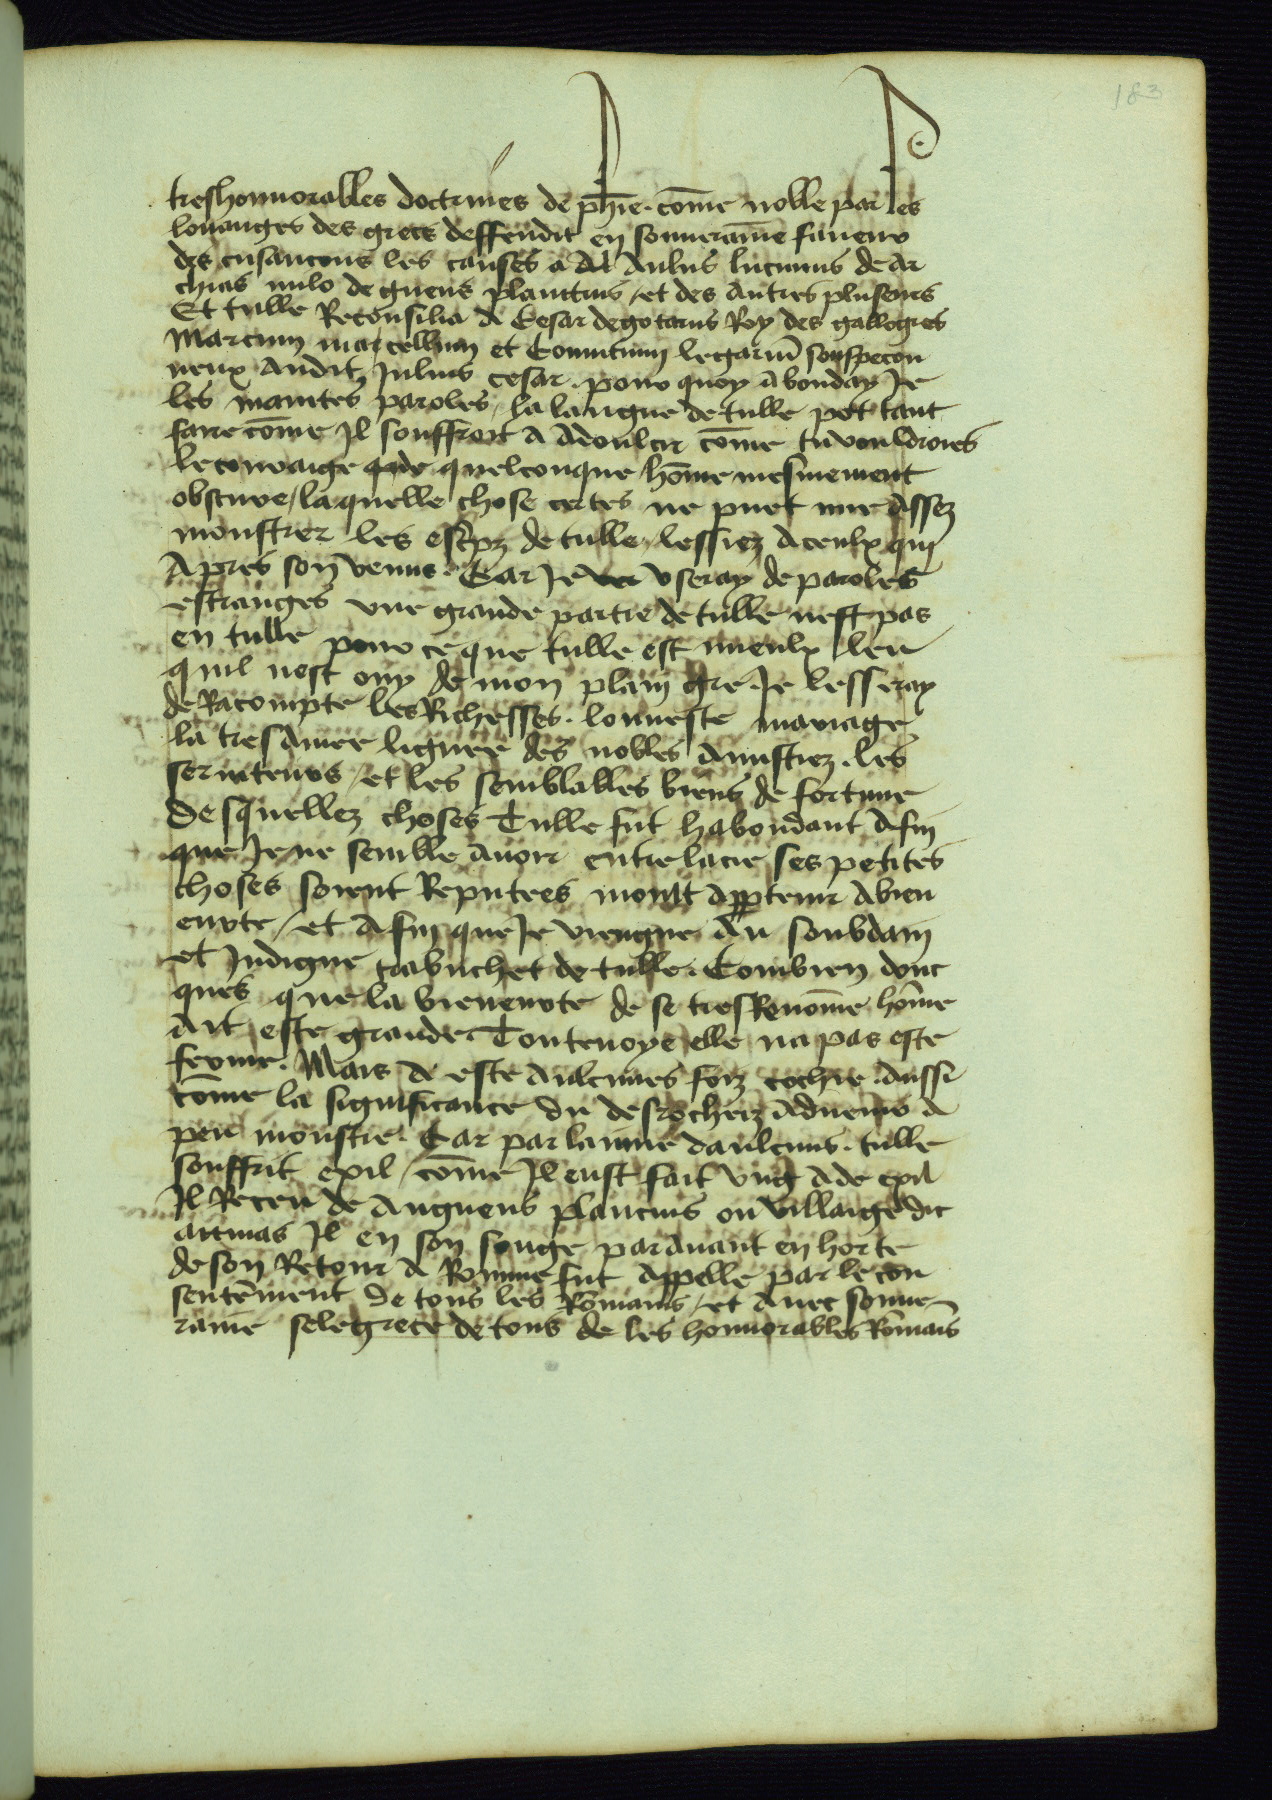 183
treshonnorables doctrines de phīe. cōme noble par les
louanges des grecs deffendit en souverainē faveur
des cusancons les causes a Al Aulus lucinius de Ar
chias milo de gneus planttins / et des autres pluseurs
Et tulle Reconsilia a Cesar degotarus Roy des gallogres
Marcum marcellum et Comitum legariū souspecon
neux audit Julius cesar. pour quoy abonday Je
les maintes paroles / la langue de tulle pot tant
faire cōme Jl souffroit a Adoulcir cōme tu vouldroies
le couraige que quelconque hōme mesmement
obscure / laquelle chose certes ne puet mie Assez
monstrer les escpz de tulle / lessiez a ceulx qui
Apres son venus. Car Je ver useray de paroles
estranges une grande partie de tulle nest pas
en tulle pour ce que tulle est mieulx leu
quil nest ouy de mon plain gre. Je lesseray
de Racompte les Richesses. lonneste mariage
la tresamee lignee des nobles Amistiez. les
serviteurs / et les semblables biens de fortune
Desquellez choses Tulle fut habondant Afin
que Je ne semble avoir entrelacie ses petites
choses soient Reputees moult apptenir A bien
eurte / et Afin que Je viengne Au soubdain
et Jndigne trabuchet de tulle. Combien donc
ques que la bieneurte de se tresrenōme hōme
Ait este grande Toutevoye elle na pas este
ferme. Mais A este Aulcunes foiz cochie. Aussi
cōme la significance du desrocheiz Advenir A
peu monstre. Car par lanime daulcuns. tulle
souffrit exil / cōme Jl eust fait ung Ade exil
Jl Receu de Angneus plancius ou villaige dit
artinas Jl en son songe paravant en horte
de son Retour A Romme fut Appelle par le con
sentēment de tous les Rōmains / et Avec souve
rainē selegrece de tous de les honnorables Rōmais